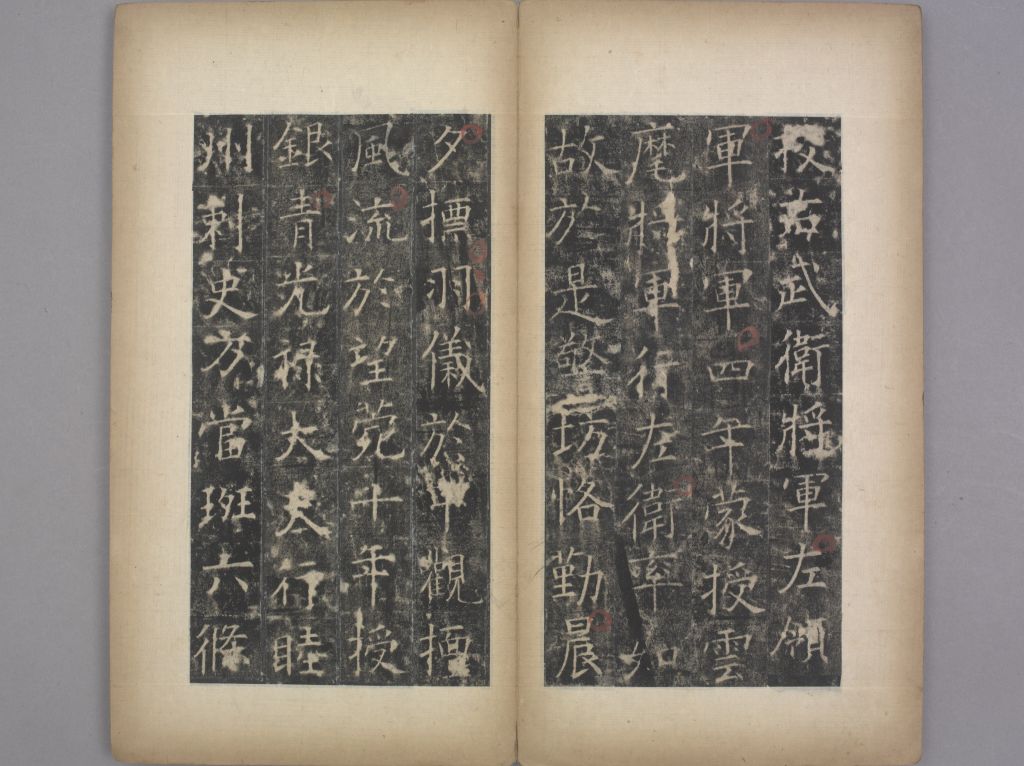 校右武衛將軍左領
軍將軍四年蒙授雲
麾將軍行左衛率如
故於是警坊恪勤晨
夕摽羽儀於甲觀擅
風流於望菀十年授
銀青光祿大夫行睦
州刺史方當班六條